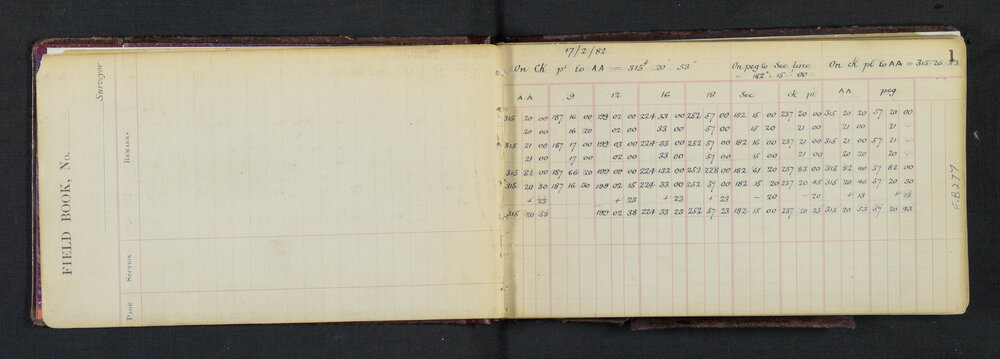 FIELD BOOK, No.
Surveyor
REMARKS
SECTION
PAGE
1
17/2/82
On Ck pt to AA = 315° 20' 53"
On peg to Sec line
" 182° 15' 00"
On ck pt to AA = 315 20 53
AA 9 12 16 18 Sec ck pt AA peg
315 20 00 187 16 00 199 02 00 224 33 00 252 57 00 182 15 00 237 20 00 315 20 20 57 20 00
20 00 16 20 02 00 33 00 57 00 15 20 21 00 21 00 21 -
315 21 00 187 17 00 199 03 00 224 33 00 252 57 00 182 16 00 237 21 00 315 21 00 57 21 -
21 00 17 00 02 00 33 00 57 00 15 00 21 00 20 20 20 -
315 82 00 187 66 20 199 09 00 224 132 00 252 228 00 182 61 20 237 83 00 315 82 40 57 82 00
315 20 30 187 16 30 199 02 15 224 33 00 252 57 00 182 15 20 237 20 45 315 20 40 57 20 30
+ 23 + 23 + 23 + 23 - 20 - 20 + 13 + 13
315 20 53 199 02 38 224 33 23 252 57 23 182 15 00 237 20 25 315 20 53 57 20 43
F.B 277